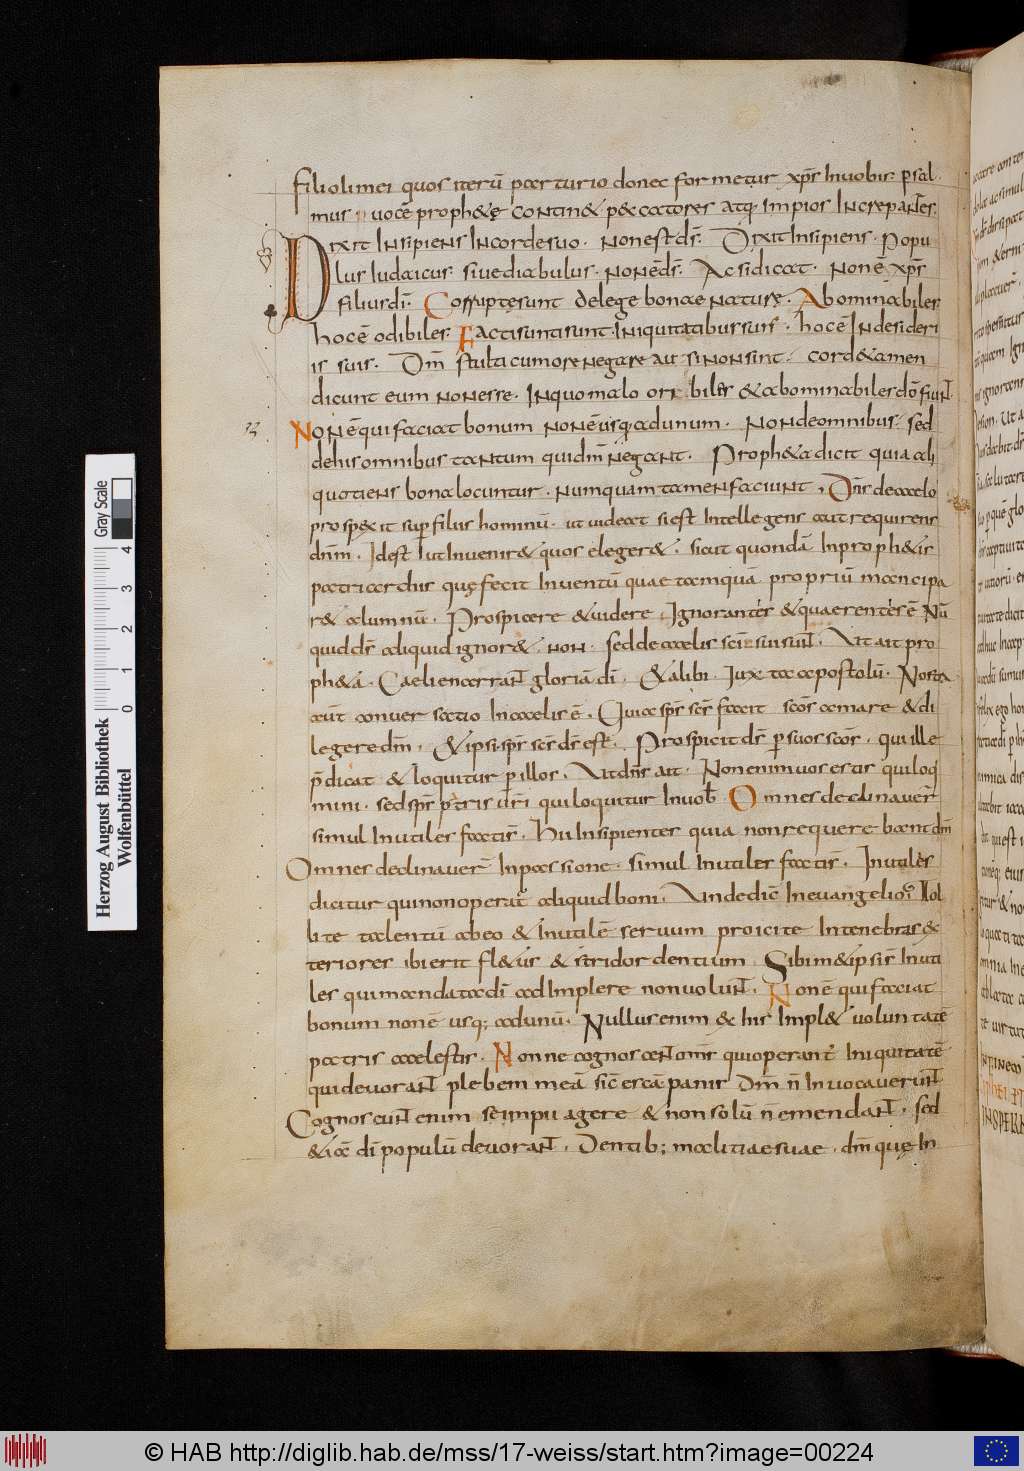 filioli mei quos iterū parturio donec formetur xp̄s In uobis· psal
mus · uocē proph&ę contin& peccatores atq· impios increpantes·
Dixit Insipiens In corde suo· non est d̄s· Dixit Insipiens· Popu
lus Iudaicus· siue diabulus· non ē d̄s· Ac si dicat· non ē xp̄s
filius dī· Corrupti sunt de lege bonae naturę· Abominabiles
hoc ē odibiles· Facti sunt Iniquitatibus suis· hoc ē In desideri
is suis· Dm̄ stulti cum ore negare aut si non sint· cord& tamen
dicunt eum non esse· In quo malo orribiles & abominabiles dō fiunt
Non ē qui faciat bonum non ē usq· ad unum· Non de omnibus· sed
de his omnibus tantum qui dm̄ negant· Proph&a dicit quia ali
quotiens bona locuntur· numquam tamen faciunt, Dn̄s de caelo
prospexit sup filius hominū· ut uideat si est Intellegens aut requirens
dnm̄· Idest ut Inuenir& quos eleger&· sicut quondā In proph&is
patriarchis quę fecit Inuentū quae tamquā propriū mancipa
r& alumnū· Prospicere & uidere, Ignorantes & quaerentes ē Nū
quid d̄s aliquid ignor&· non· sed de caelis sc̄i sui sunt· Ut ait pro
ph&a· Caeli enarrant gloriā dī· & alibi· Iuxta apostolū· Nostra
aut conuersatio In caelis ē, Quia sp̄s sc̄s facit sc̄os amare & di
legere dm̄, & ipsi sp̄s sc̄s d̄s est· Prospicit d̄s p suos sc̄os· qui ille
p̄dicat & loquitur p illos, Ut dn̄s ait· Non enim uos estis qui loq
mini· sed sp̄s patris ur̄i qui loquitur In uob· Omnes declinauer̄
simul Inutiles facti s̄· Hii Insipientes quia non requerebant dm̄
Omnes declinauer̄ In passione· simul Inutiles facti s̄· Inutiles
dicitur qui non operat̄ aliquid boni, Unde dic̄ In euangelio· Tol
lite talentū ab eo & Inutilē seruum proicite In tenebras ex
teriores ibi erit fl&us & stridor dentium Sibim&ipsis s̄ Inuti
les qui mandata dī ad Implere non uolunt, Non ē qui faciat
bonum non ē usq; ad unū· Nullus enim & his Impl& uoluntatē
patris caelestis· Nonne cognoscent om̄s qui operant̄ Iniquitatē
qui deuorant plebem meā sic̄ escā panis dm̄ n̄ Inuocauerunt
Cognoscunt enim se impii agere & non solū n̄ emendant, sed
& iā dī populū deuorant, Dentib; malitiae suae· dm̄ quę In
13
Herzog August Bibliothek
Wolfenbüttel
0 1 2 3 4
Gray Scale
© HAB http://diglib.hab.de/mss/17-weiss/start.htm?image=00224